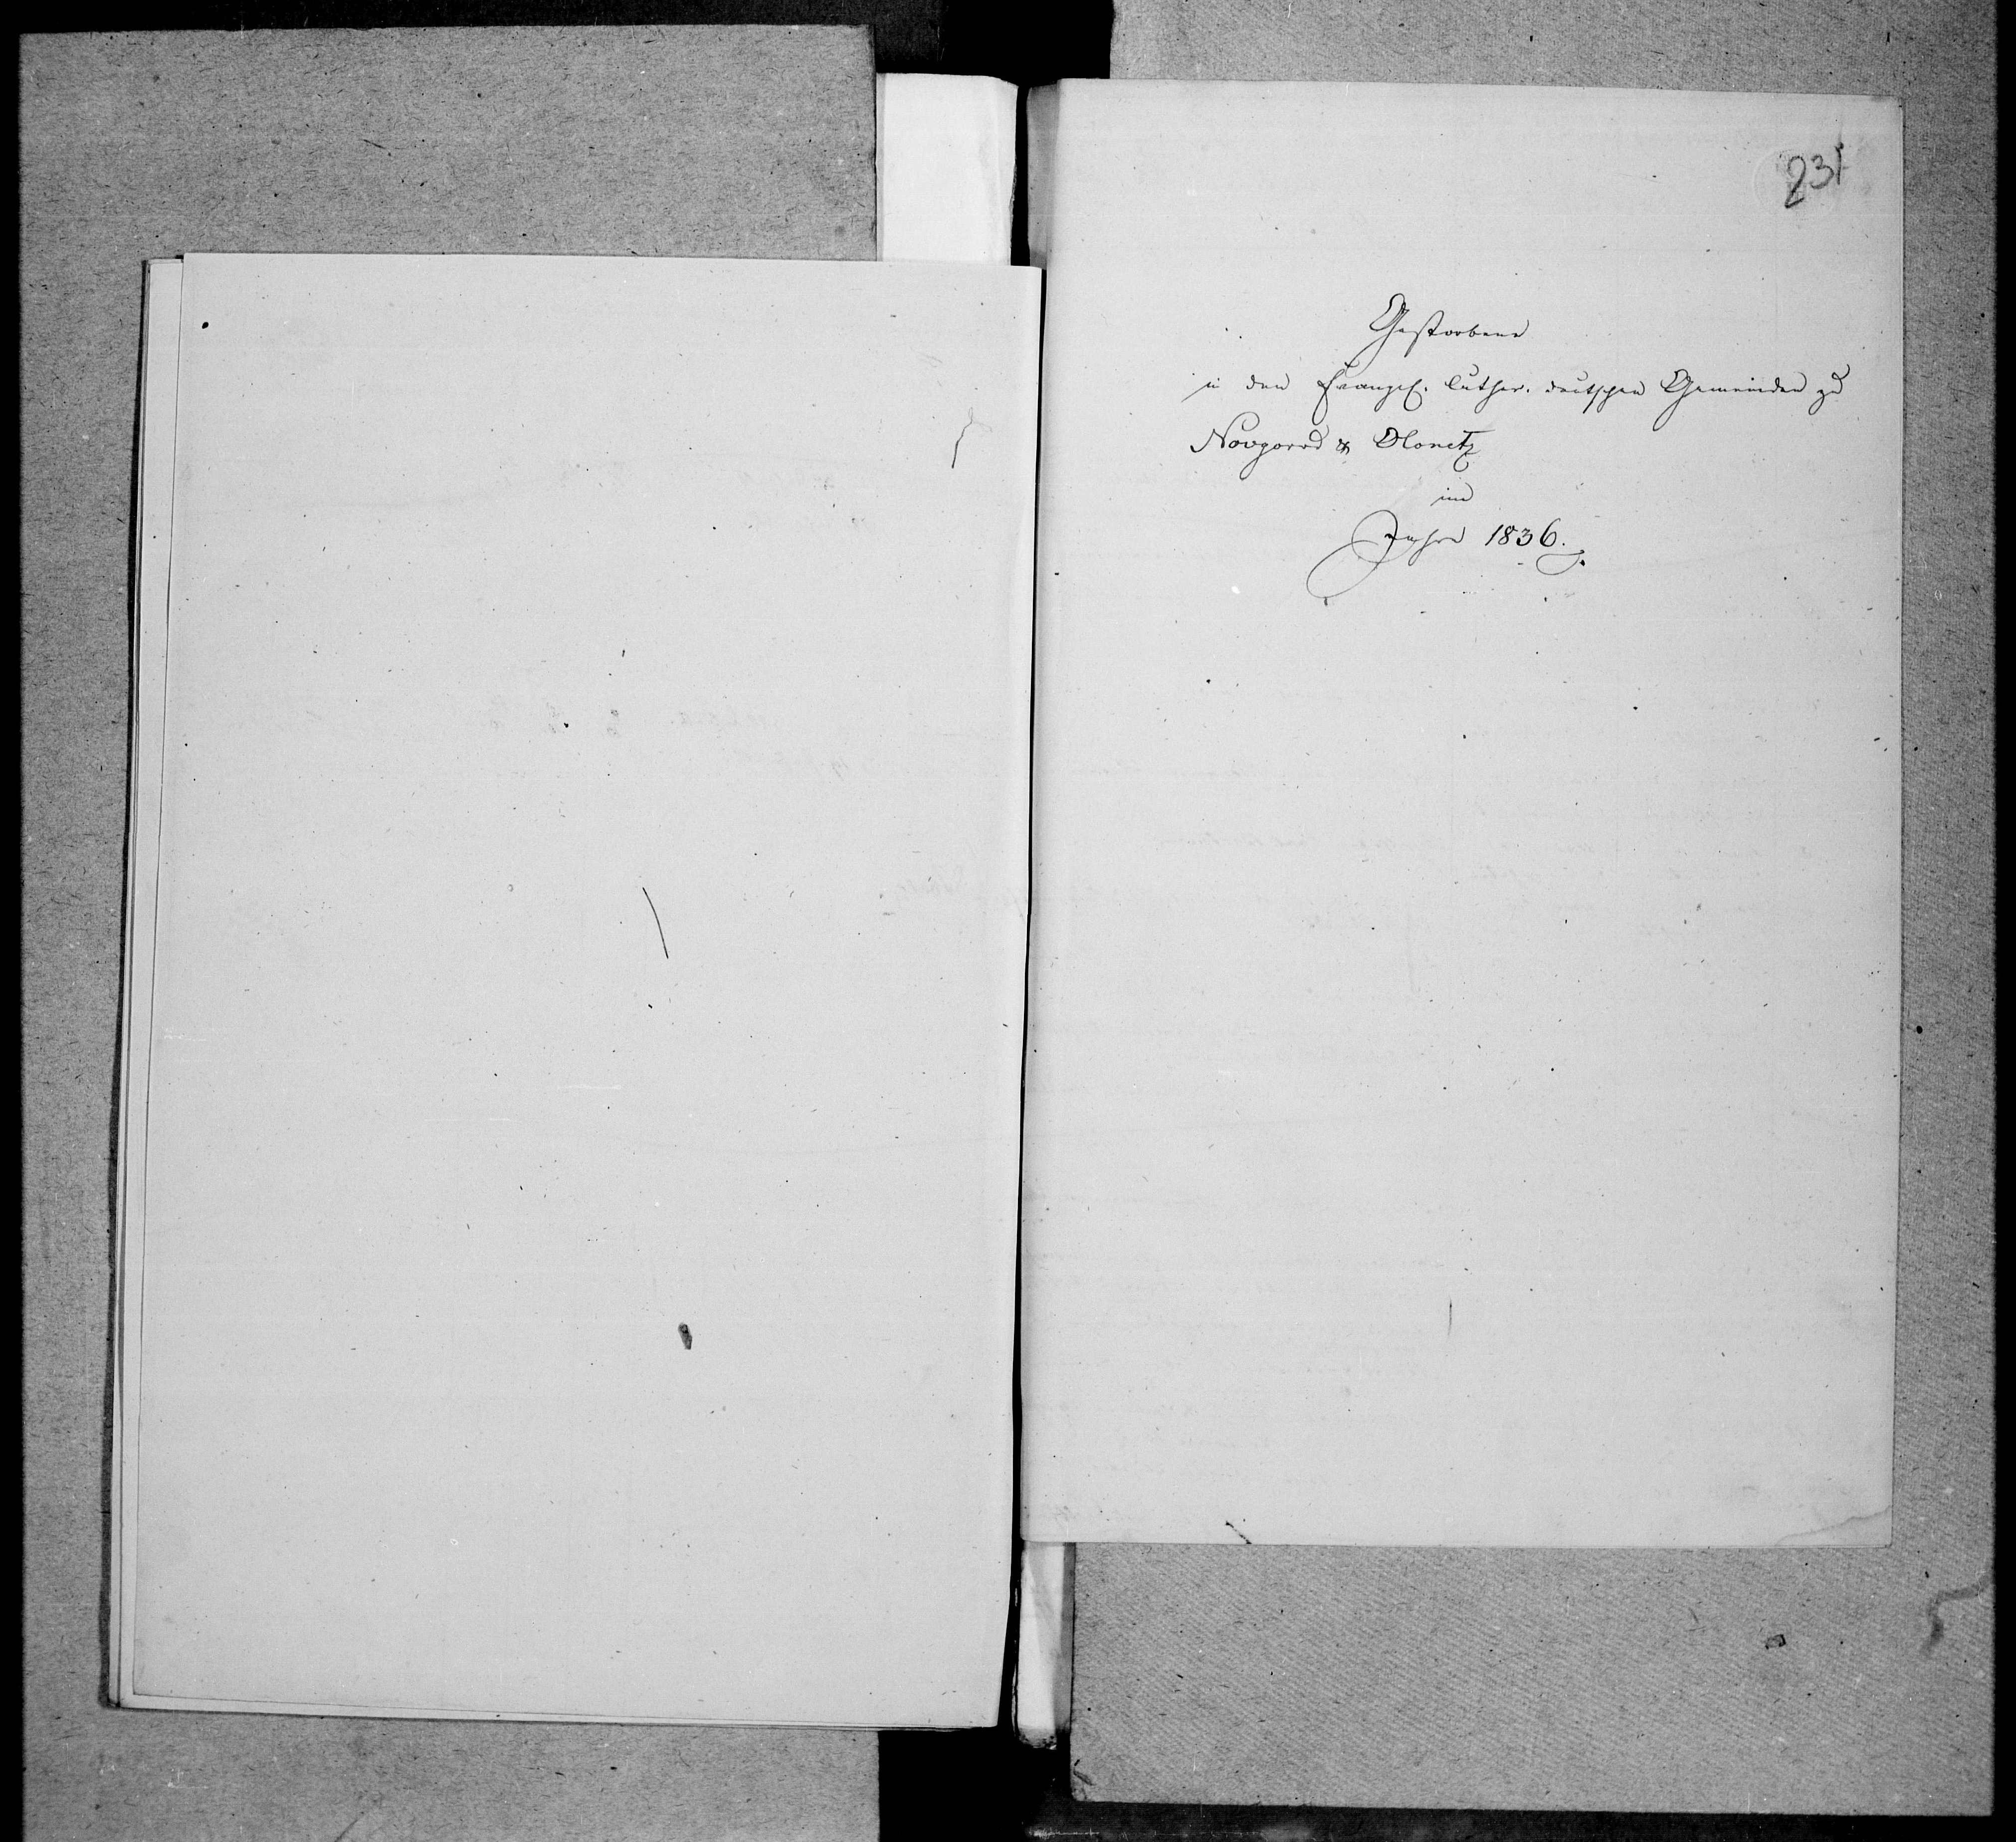 231
Gestorbene
in den Evangel. luther. deutschen Gemeinden zu
Novgorod & Olonetz
im
Jahre 1836.